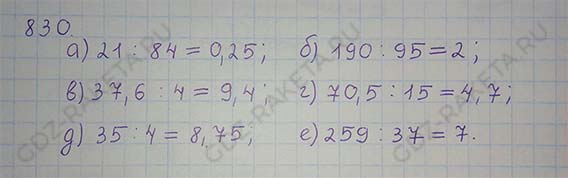 830.
а) 21 : 84 = 0,25; б) 190 : 95 = 2;
в) 37,6 : 4 = 9,4; г) 70,5 : 15 = 4,7;
д) 35 : 4 = 8,75; е) 259 : 37 = 7.
GDZ-RAKETA.RU